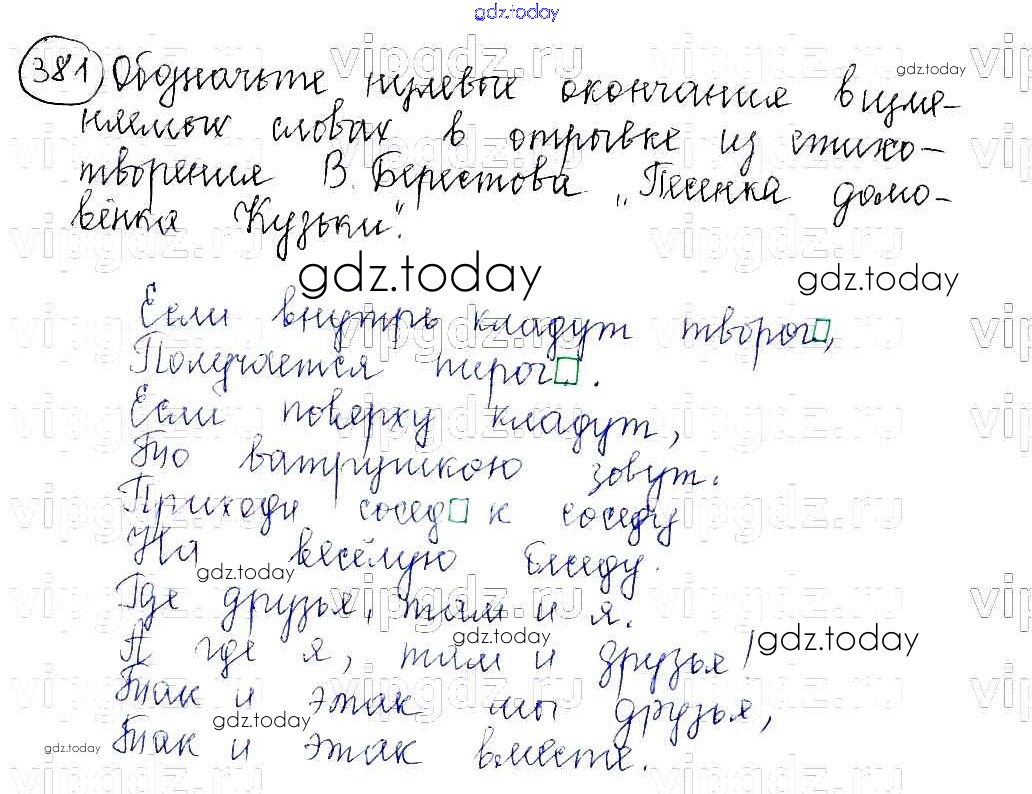 gdz.today
381 Обозначьте нулевые окончания в изме-
няемых словах в отрывке из стихо-
творения В. Берестова „Песенка домо-
вёнка Кузьки".
gdz.today
gdz.today
gdz.today
Если внутрь кладут творог,
Получается пирог.
Если поверху кладут,
То ватрушкою зовут.
Приходи сосед к соседу
На весёлую беседу.
gdz.today
Где друзья, там и я.
gdz.today
gdz.today
А где я, там и друзья!
Так и этак мы друзья,
gdz.today
gdz.today
Так и этак вместе.
vipgdz.ru